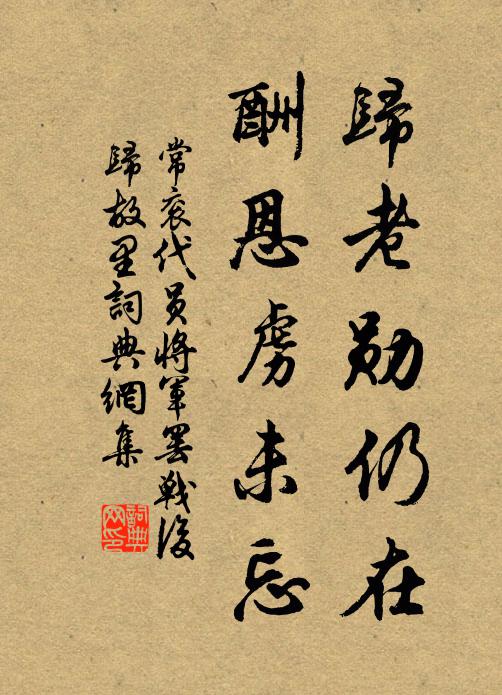 歸老勛仍在
酬恩虜未忘
常袞代員將軍罷戰後
歸故里詞典網集
詞典
网印